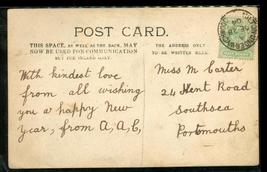 POST CARD.
THIS SPACE, AS WELL AS THE BACK, MAY
NOW BE USED FOR COMMUNICATION
BUT FOR INLAND ONLY.
THE ADDRESS ONLY
TO BE WRITTEN HERE.
With kindest love
from all wishing
you a happy New
Year, from A, A, C,
Miss M Carter
24 Hent Road
Southsea
Portsmouths